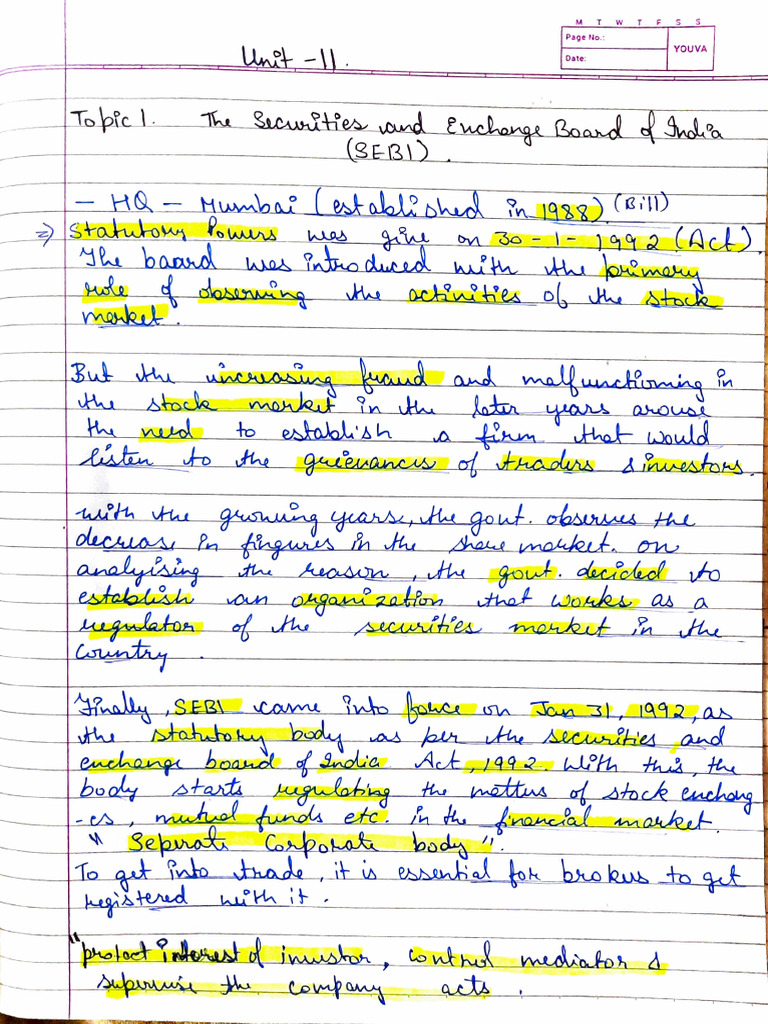 M T W T F S S
Page No.:
YOUVA
Date:
Unit - II.
Topic 1. The Securities and Exchange Board of India
(SEBI).
- HQ - Mumbai (established in 1988) (Bill)
=> Statutory Powers was give on 30-1-1992 (Act).
The board was introduced with the primary
role of observing the activities of the stock
market.
But the increasing fraud and malfunctioning in
the stock market in the later years arouse
the need to establish a firm that would
listen to the grievances of traders & investors.
With the growing years, the govt. observes the
decrease in fingures in the share market. on
analyising the reason, the govt. decided to
establish an organization that works as a
regulator of the securities market in the
country.
Finally, SEBI came into force on Jan 31, 1992, as
the statutory body as per the securities and
exchange board of India Act, 1992. With this, the
body starts regulating the mettus of stock exchang
-es, mutual funds etc. in the financial market.
"Seperate Corporate body".
To get into trade, it is essential for brokers to get
registered with it.
"protect interest of investor, control mediator &
supervise the company acts.